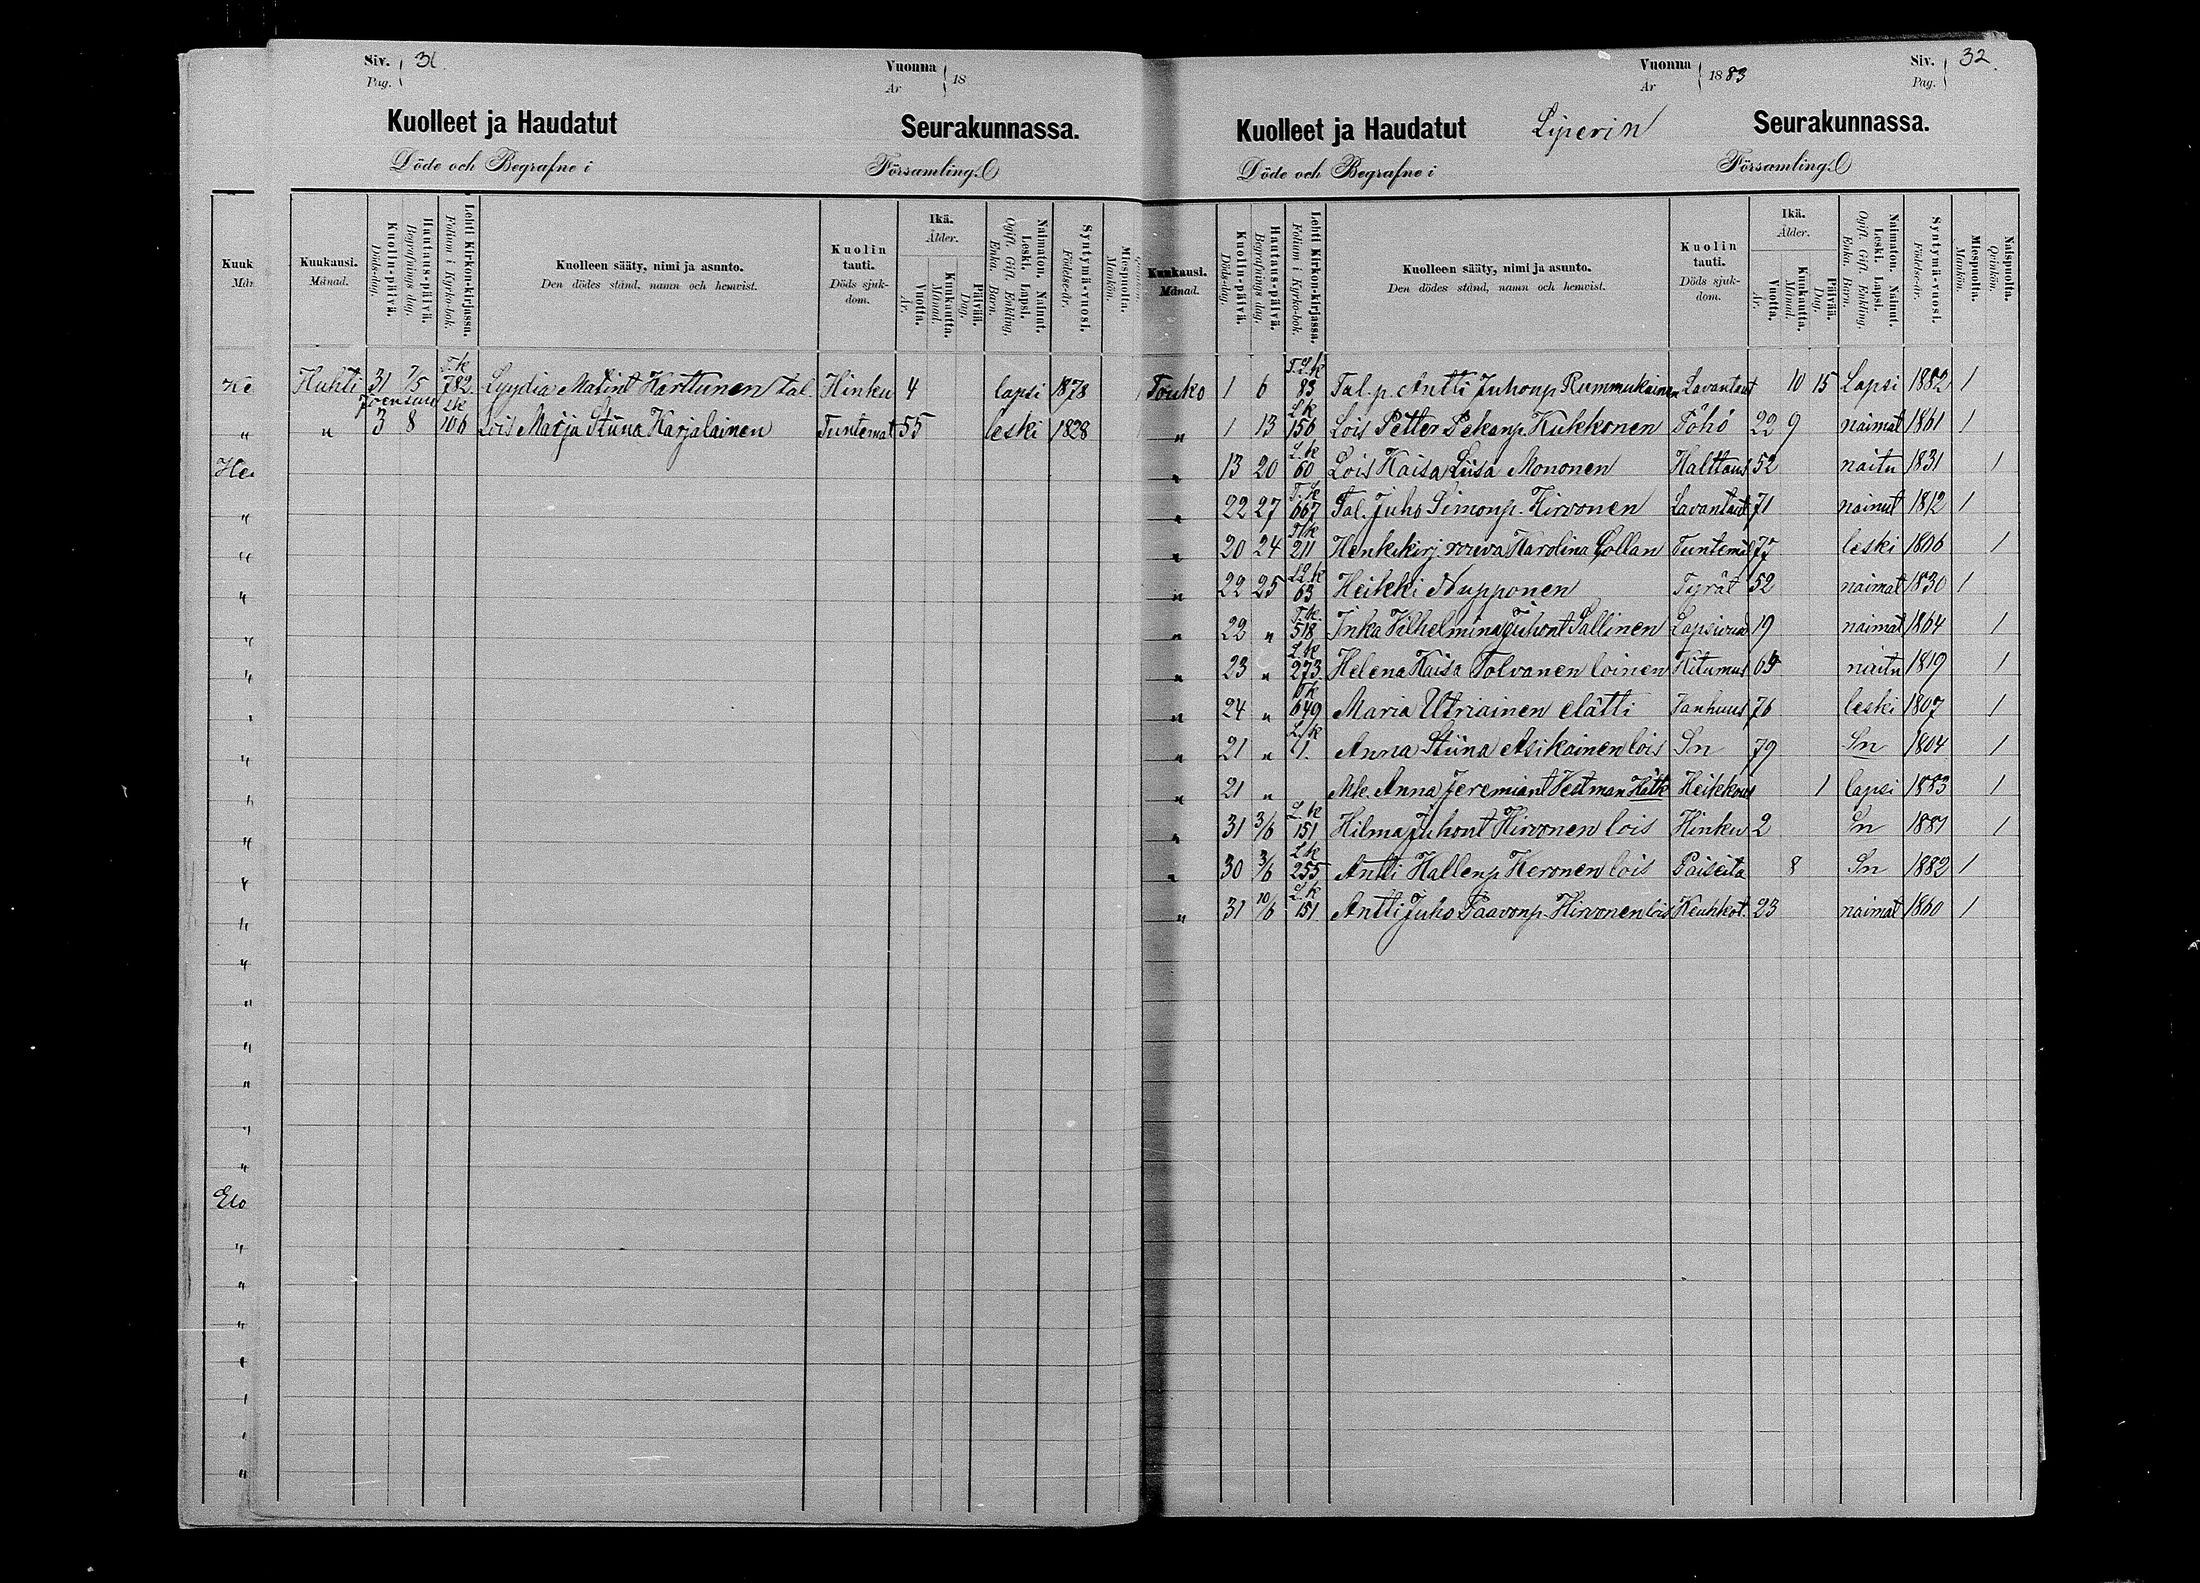 Siv. 31
Pag.
Vuonna 18
År
Kuolleet ja Haudatut Seurakunnassa.
Döde och Begrafne i Församling.
Kuukausi. Kuolin-päivä. Hautaus-päivä. Lehti Kirkon-kirjassa. Kuolleen sääty, nimi ja asunto. Kuolin tauti. Ikä. Vuotta. Kuukautta. Päivää. Naimaton. Nainut. Leski. Lapsi. Syntymä-vuosi. Miespuolta.
Månad. Döds-dag. Begrafnings dag. Folium i Kyrko-bok. Den dödes stånd, namn och hemvist. Döds sjukdom. Ålder. År. Månad. Dag. Ogift. Gift. Enkling. Enka. Barn. Födelse-år. Mankön.
T.k
Huhti 31 7/5 782 Lyydia Matint Karttunen tal. Hinku 4 lapsi 1878
Joensuu Lk
" 3 8 106 Lois Marja Stiina Karjalainen Tuntemat 55 leski 1828
Vuonna 1883
År
Siv. 32.
Pag.
Kuolleet ja Haudatut Liperin Seurakunnassa.
Döde och Begrafne i Församling.
Kuukausi. Kuolin-päivä. Hautaus-päivä. Lehti Kirkon-kirjassa. Kuolleen sääty, nimi ja asunto. Kuolin tauti. Ikä. Vuotta. Kuukautta. Päivää. Naimaton. Nainut. Leski. Lapsi. Syntymä-vuosi. Miespuolta. Naispuolta.
Månad. Döds-dag. Begrafnings dag. Folium i Kyrko-bok. Den dödes stånd, namn och hemvist. Döds sjukdom. Ålder. År. Månad. Dag. Ogift. Gift. Enkling. Enka. Barn. Födelse-år. Mankön. Qvinkön.
Touko 1 6 83 Tal. p. Antti Juhonp Rummukainen Lavantaut 10 15 Lapsi 1882 1
L.k
" 1 13 156 Lois Petter Pekanp. Kukkonen Föhö 22 9 naimat 1861 1
L.k
" 13 20 60 Lois Kaisa Liisa Mononen Halttaus 52 naitu 1831 1
T.k
" 22 27 667 Tal. Juho Simonp. Hirvonen Lavantaut 71 nainut 1812 1
T.k
" 20 24 211 Henkikirj. rouva Karolina Collan Tuntemat 77 leski 1806 1
" 22 25 63 Heikki Nupponen Tyrät 52 naimat 1830 1
T.k.
" 22 " 518 Inka Vilhelmina Juhont Pallinen 19 naimat 1864 1
L.k
" 23 " 273. Helena Kaisa Tolvanen loinen Kitumus 64 naitu 1819 1
T.k
" 24 " 649 Maria Utriainen elätti Vanhuus 76 leski 1807 1
L.k
" 21 " 1. Anna Stiina Asikainen lois Sn 79 Sn 1804 1
" 21 " Mk. Anna Jeremiant Vestman Heikkous 1 lapsi 1883 1
L.k
" 31 3/6 151 Hilma Juhont Hirvonen lois Hinku 2 Sn 1881 1
L.k
" 30 3/6 255 Antti Hallenp Keronen lois Paiseita 8 Sn 1882 1
L.k
" 31 10/6 151 Antti Juho Paavonp. Hirvonen lois Keuhkot. 23 naimat 1860 1